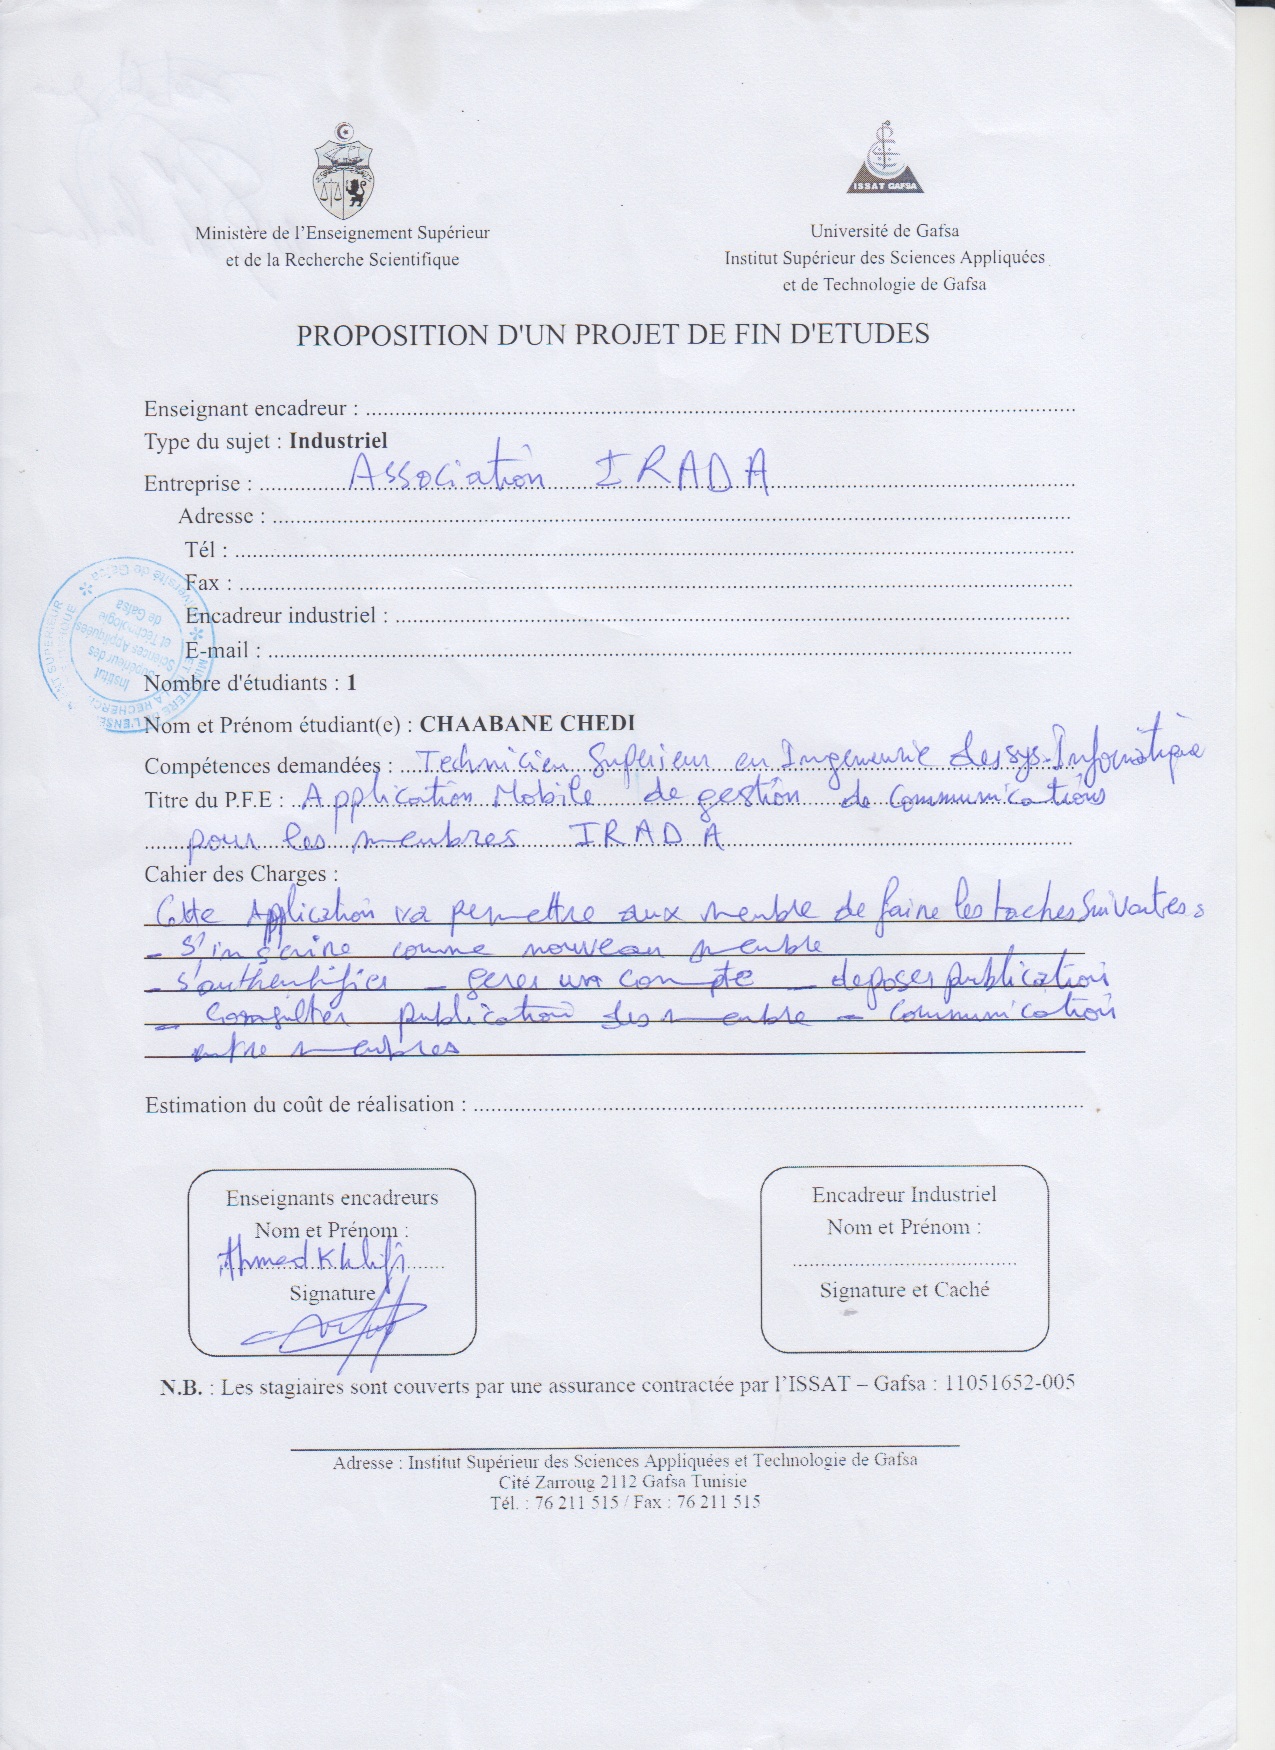 ISSAT GAFSA
Ministère de l'Enseignement Supérieur
et de la Recherche Scientifique
Université de Gafsa
Institut Supérieur des Sciences Appliquées
et de Technologie de Gafsa
PROPOSITION D'UN PROJET DE FIN D'ETUDES
Enseignant encadreur :
Type du sujet : Industriel
Entreprise : Association IRADA
Adresse :
Tél :
Fax :
Encadreur industriel :
E-mail :
Institut Supérieur des Sciences Appliquées et Technologie de Gafsa
Nombre d'étudiants : 1
Nom et Prénom étudiant(e) : CHAABANE CHEDI
Compétences demandées : Technicien Superieur en Ingenieurie des sys. Informatique
Titre du P.F.E : Application Mobile de gestion de Communications
pour les membres IRADA
Cahier des Charges :
Cette Application va permettre aux membre de faire les taches Suivantes :
- S'inscrire comme nouveau membre
- s'authentifier - gerer un compte - deposer publication
- Consulter publication des membre - Communication
entre membres
Estimation du coût de réalisation :
Enseignants encadreurs
Nom et Prénom :
Ahmed Khlifi
Signature
Encadreur Industriel
Nom et Prénom :
Signature et Caché
N.B. : Les stagiaires sont couverts par une assurance contractée par l'ISSAT – Gafsa : 11051652-005
Adresse : Institut Supérieur des Sciences Appliquées et Technologie de Gafsa
Cité Zarroug 2112 Gafsa Tunisie
Tél. : 76 211 515 / Fax : 76 211 515